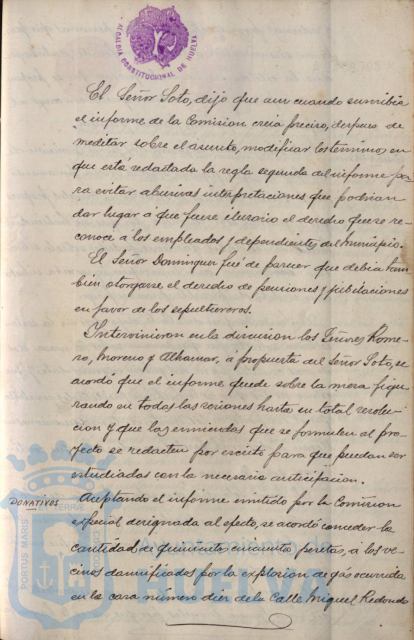 ALCALDIA CONSTITUCIONAL DE HUELVA
El Señor Soto, dijo que aun cuando suscribia
el informe de la Comision creia preciso, despues de
meditar sobre el asunto, modificar los terminos en
que está redactada la regla segunda del informe pa
ra evitar abusivas interpretaciones que podrian
dar lugar a que fuere elusorio el derecho que se re-
conoce á los empleados y dependientes del Municipio.
El Señor Dominguez fué de parecer que debia tam
bien otorgarse el derecho de pensiones y jubilaciones
en favor de los sepultureros.
Intervinieron en la discusion los Señores Rome-
ro, Moreno y Alhamar, á propuesta del Señor Soto, se
acordó que el informe quede sobre la mesa figu
rando en todas las sesiones hasta su total resolu-
cion y que las enmiendas que se formulen al pro-
yecto se redacten por escrito para que puedan ser
estudiadas con la necesaria anticipacion.
DONATIVOS
Aceptando el informe emitido por la Comision
especial designada al efecto, se acordó conceder la
cantidad de quinientas cincuenta pesetas, a los ve-
cinos damnificados por la explosion de gás ocurrida
en la casa número diez de la Calle Miguel Redondo
PORTUS MARIS
TERRÆ